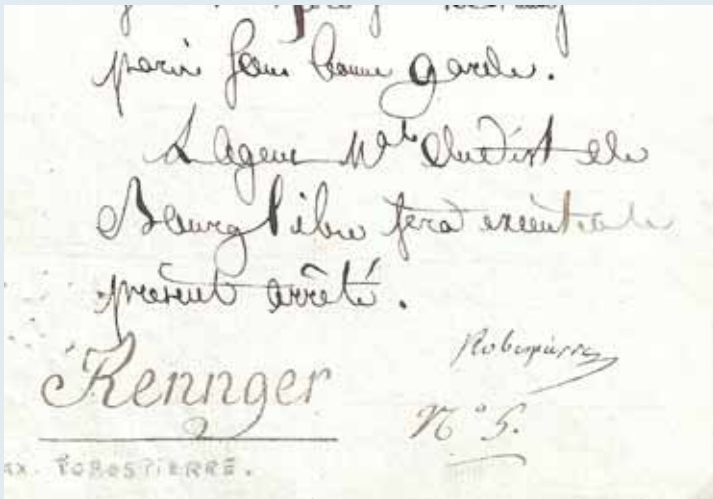 pour faire bonne garde.
L'agent Nal du dist de
Bourglibre fera exécuter le
présent arrêté.
Robespierre
Rennger
N° 5.
ax. ROBOSTIERRE.